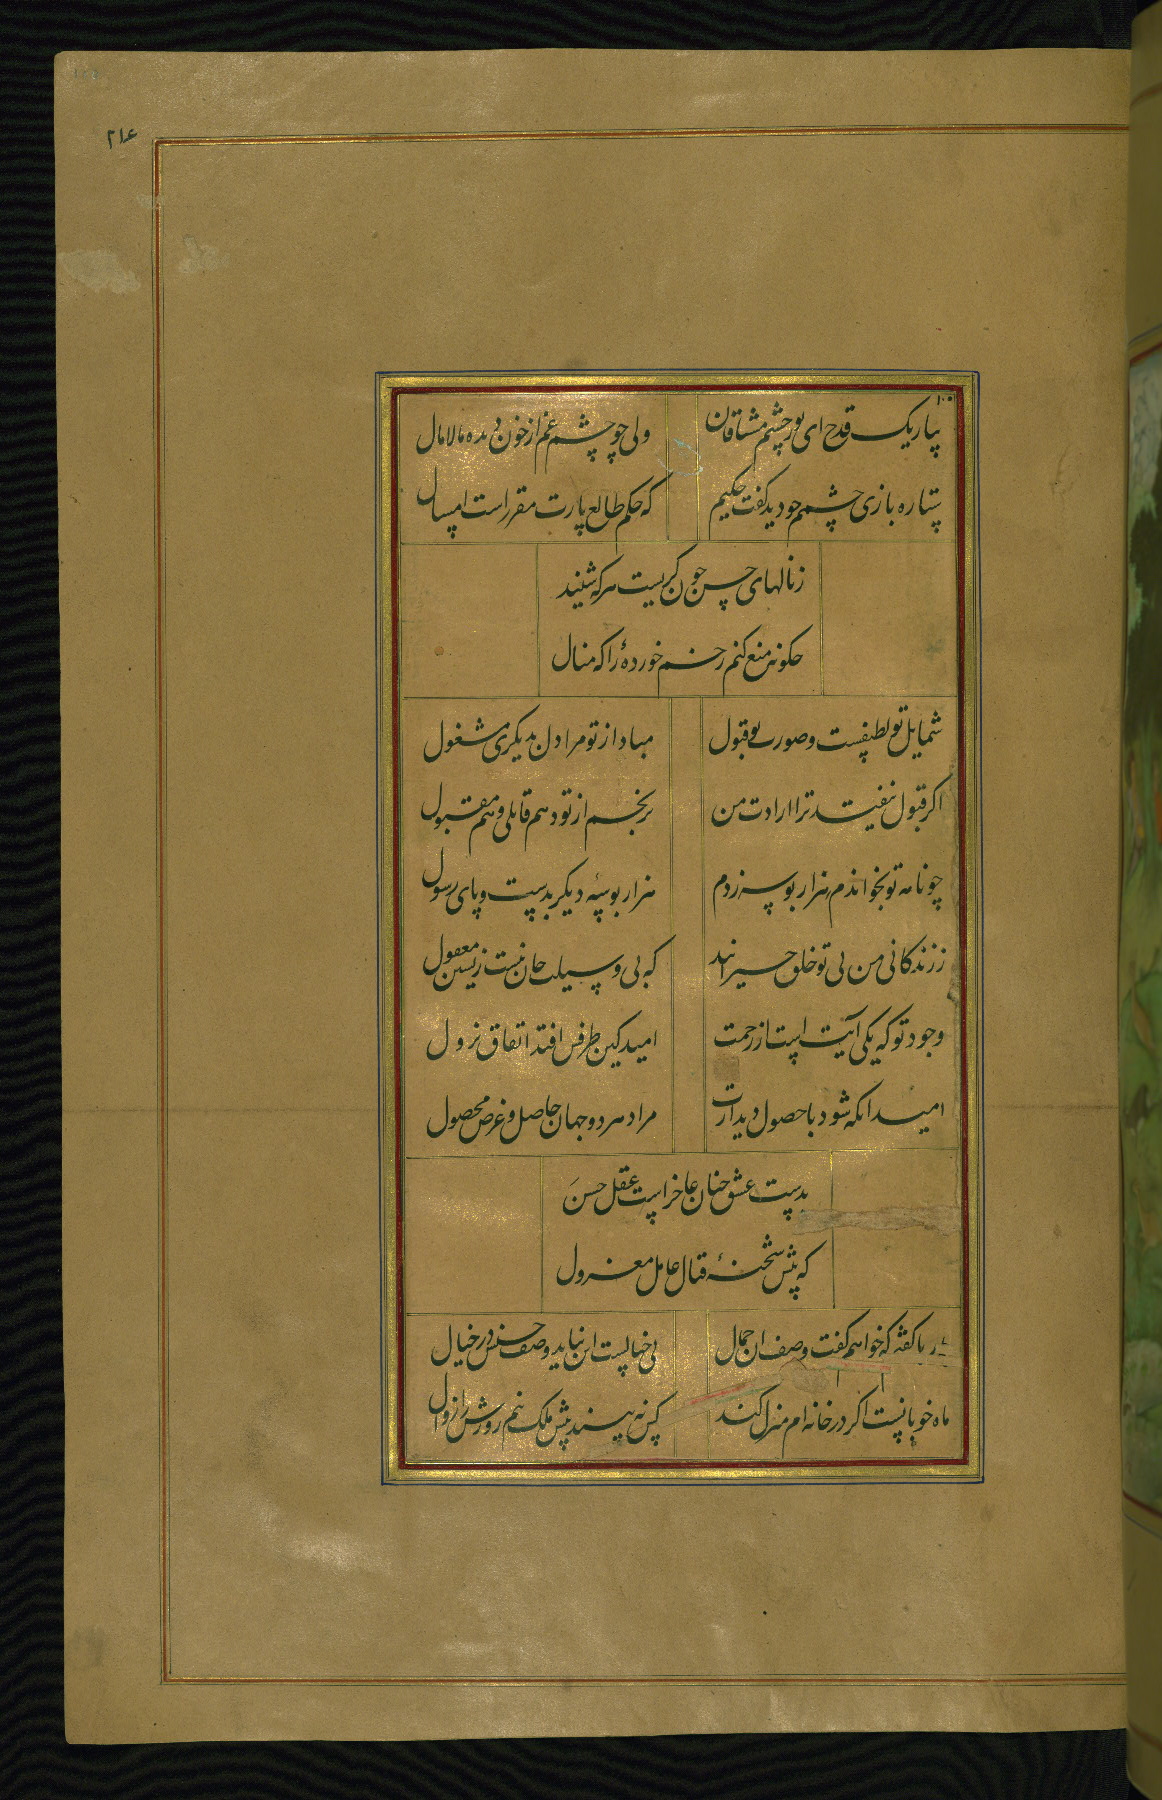 ۲۱۶
بیار یک قدح ای نور چشم مشتاقان ولی چو چشم غم از خون دیده مالامال
ستاره بازی چشمم چو دید گفت حکیم که حکم طالع پارت مقرر است امسال
زنالهای حسن چون گریست هرکه شنید
چکونه منع کنم زخم خوردهٔ را که منال
شمایل تو لطیفست و صورت تو قبول مباد از تو مرا دل بدیکری مشغول
اکر قبول نیفتد ترا ارادت من نرنجم از تو دهم قابلی و هم مقبول
چو نامه تو بخواندم هزار بوسه زدم هزار بوسهٔ دیکر بدست و پای رسول
ز زندکانی من بی تو خلق حیرانند که بی وسیلت جان نیست زیستن معقول
وجود تو که یکی آیت است از رحمت امید کین طرفش افتد اتفاق نزول
امید انکه شود با حصول دیدارت مراد هر دو جهان حاصل و غرض محصول
بدست عشق چنان عاجز است عقل حسن
که پیش شحنهٔ قتال عامل معزول
ما کفته که خواهم کفت وصف ان جمال بی خیالست این نیاید وصف حسنش در خیال
ماه خوبانست اکر در خانه ام منزل کند کس نه بیند پیش ملک نیم روزش را زوال